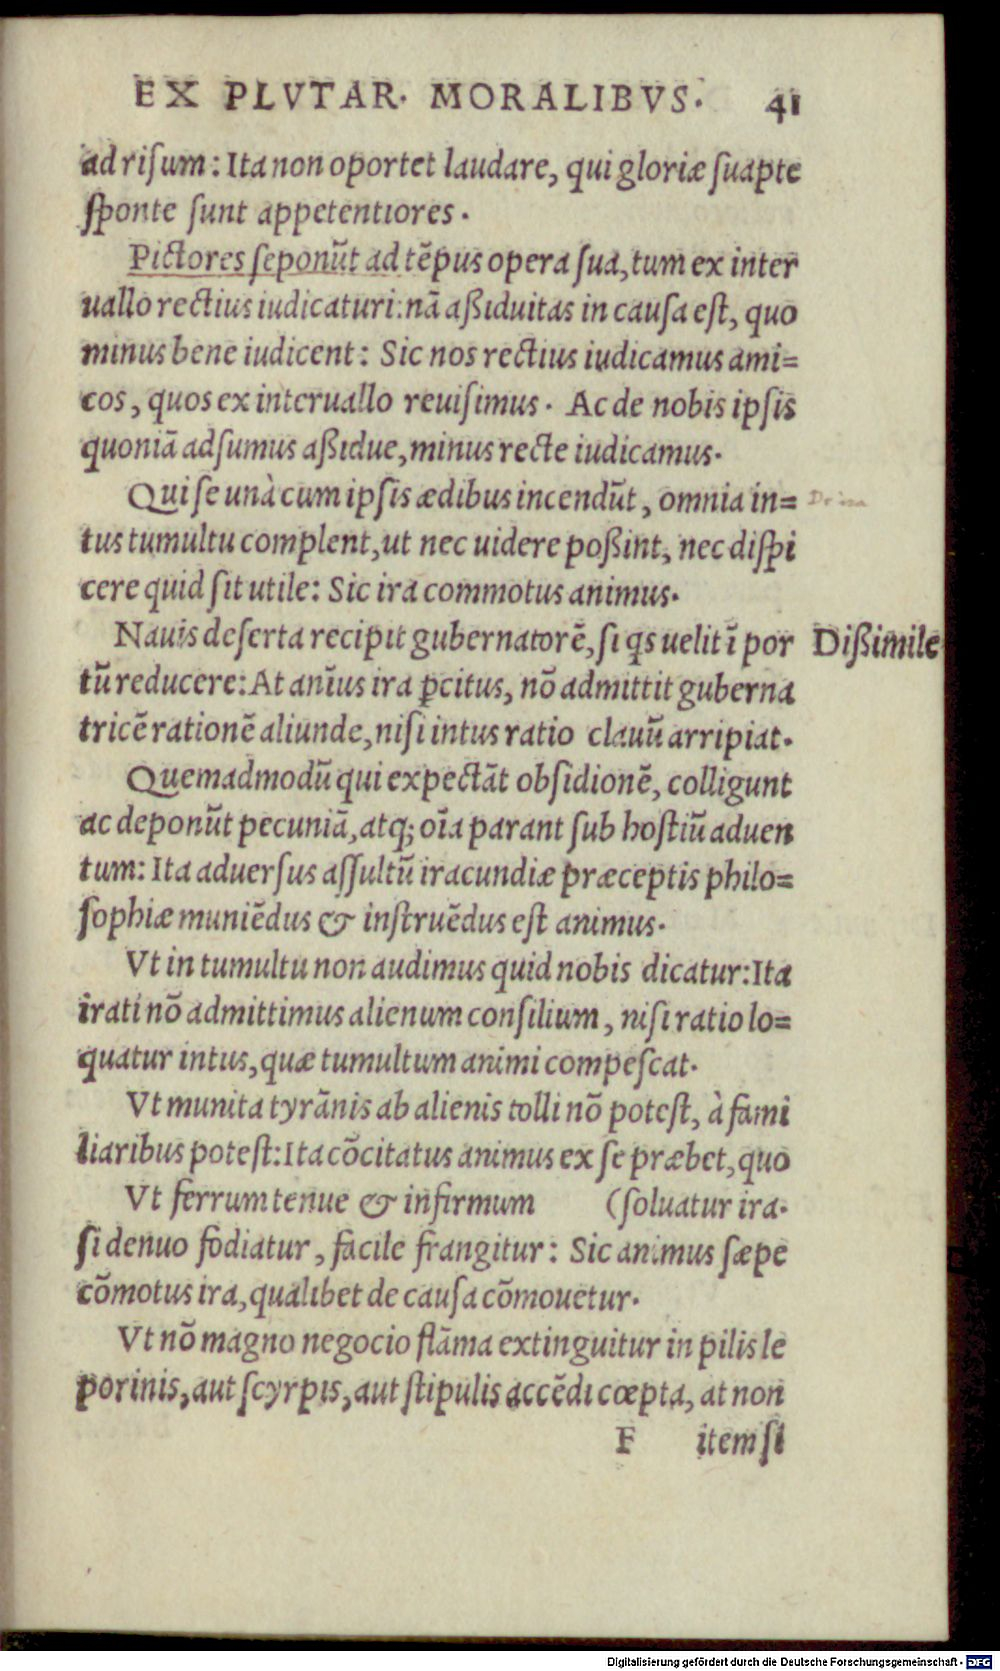 EX PLVTAR. MORALIBVS. 41
ad riſum: Ita non oportet laudare, qui gloriæ ſuapte
ſponte ſunt appetentiores.
Pictores ſeponūt ad tēpus opera ſua, tum ex inter
uallo rectius iudicaturi: nā aßiduitas in cauſa eſt, quo
minus bene iudicent: Sic nos rectius iudicamus ami=
cos, quos ex interuallo reuiſimus. Ac de nobis ipſis
quoniā adſumus aßidue, minus recte iudicamus.
Qui ſe unà cum ipſis ædibus incendūt, omnia in= De ira
tus tumultu complent, ut nec uidere poßint, nec diſpi
cere quid ſit utile: Sic ira commotus animus.
Nauis deſerta recipit gubernatorē, ſi qs uelit ī por Dißimile
tū reducere: At anīus ira ꝑcitus, nō admittit guberna
tricē rationē aliunde, niſi intus ratio clauū arripiat.
Quemadmodū qui expectāt obſidionē, colligunt
ac deponūt pecuniā, atq; oīa parant ſub hoſtiū aduen
tum: Ita aduerſus aſſultū iracundiæ præceptis philo=
ſophiæ muniēdus & inſtruēdus eſt animus.
Vt in tumultu non audimus quid nobis dicatur: Ita
irati nō admittimus alienum conſilium, niſi ratio lo=
quatur intus, quæ tumultum animi compeſcat.
Vt munita tyrānis ab alienis tolli nō poteſt, à fami
liaribus poteſt: Ita cōcitatus animus ex ſe præbet, quo
Vt ferrum tenue & infirmum (ſoluatur ira.
ſi denuo fodiatur, facile frangitur: Sic animus ſæpe
cōmotus ira, qualibet de cauſa cōmouetur.
Vt nō magno negocio flāma extinguitur in pilis le
porinis, aut ſcyrpis, aut ſtipulis accēdi cœpta, at non
F item ſi
Digitalisierung gefördert durch die Deutsche Forschungsgemeinschaft - DFG